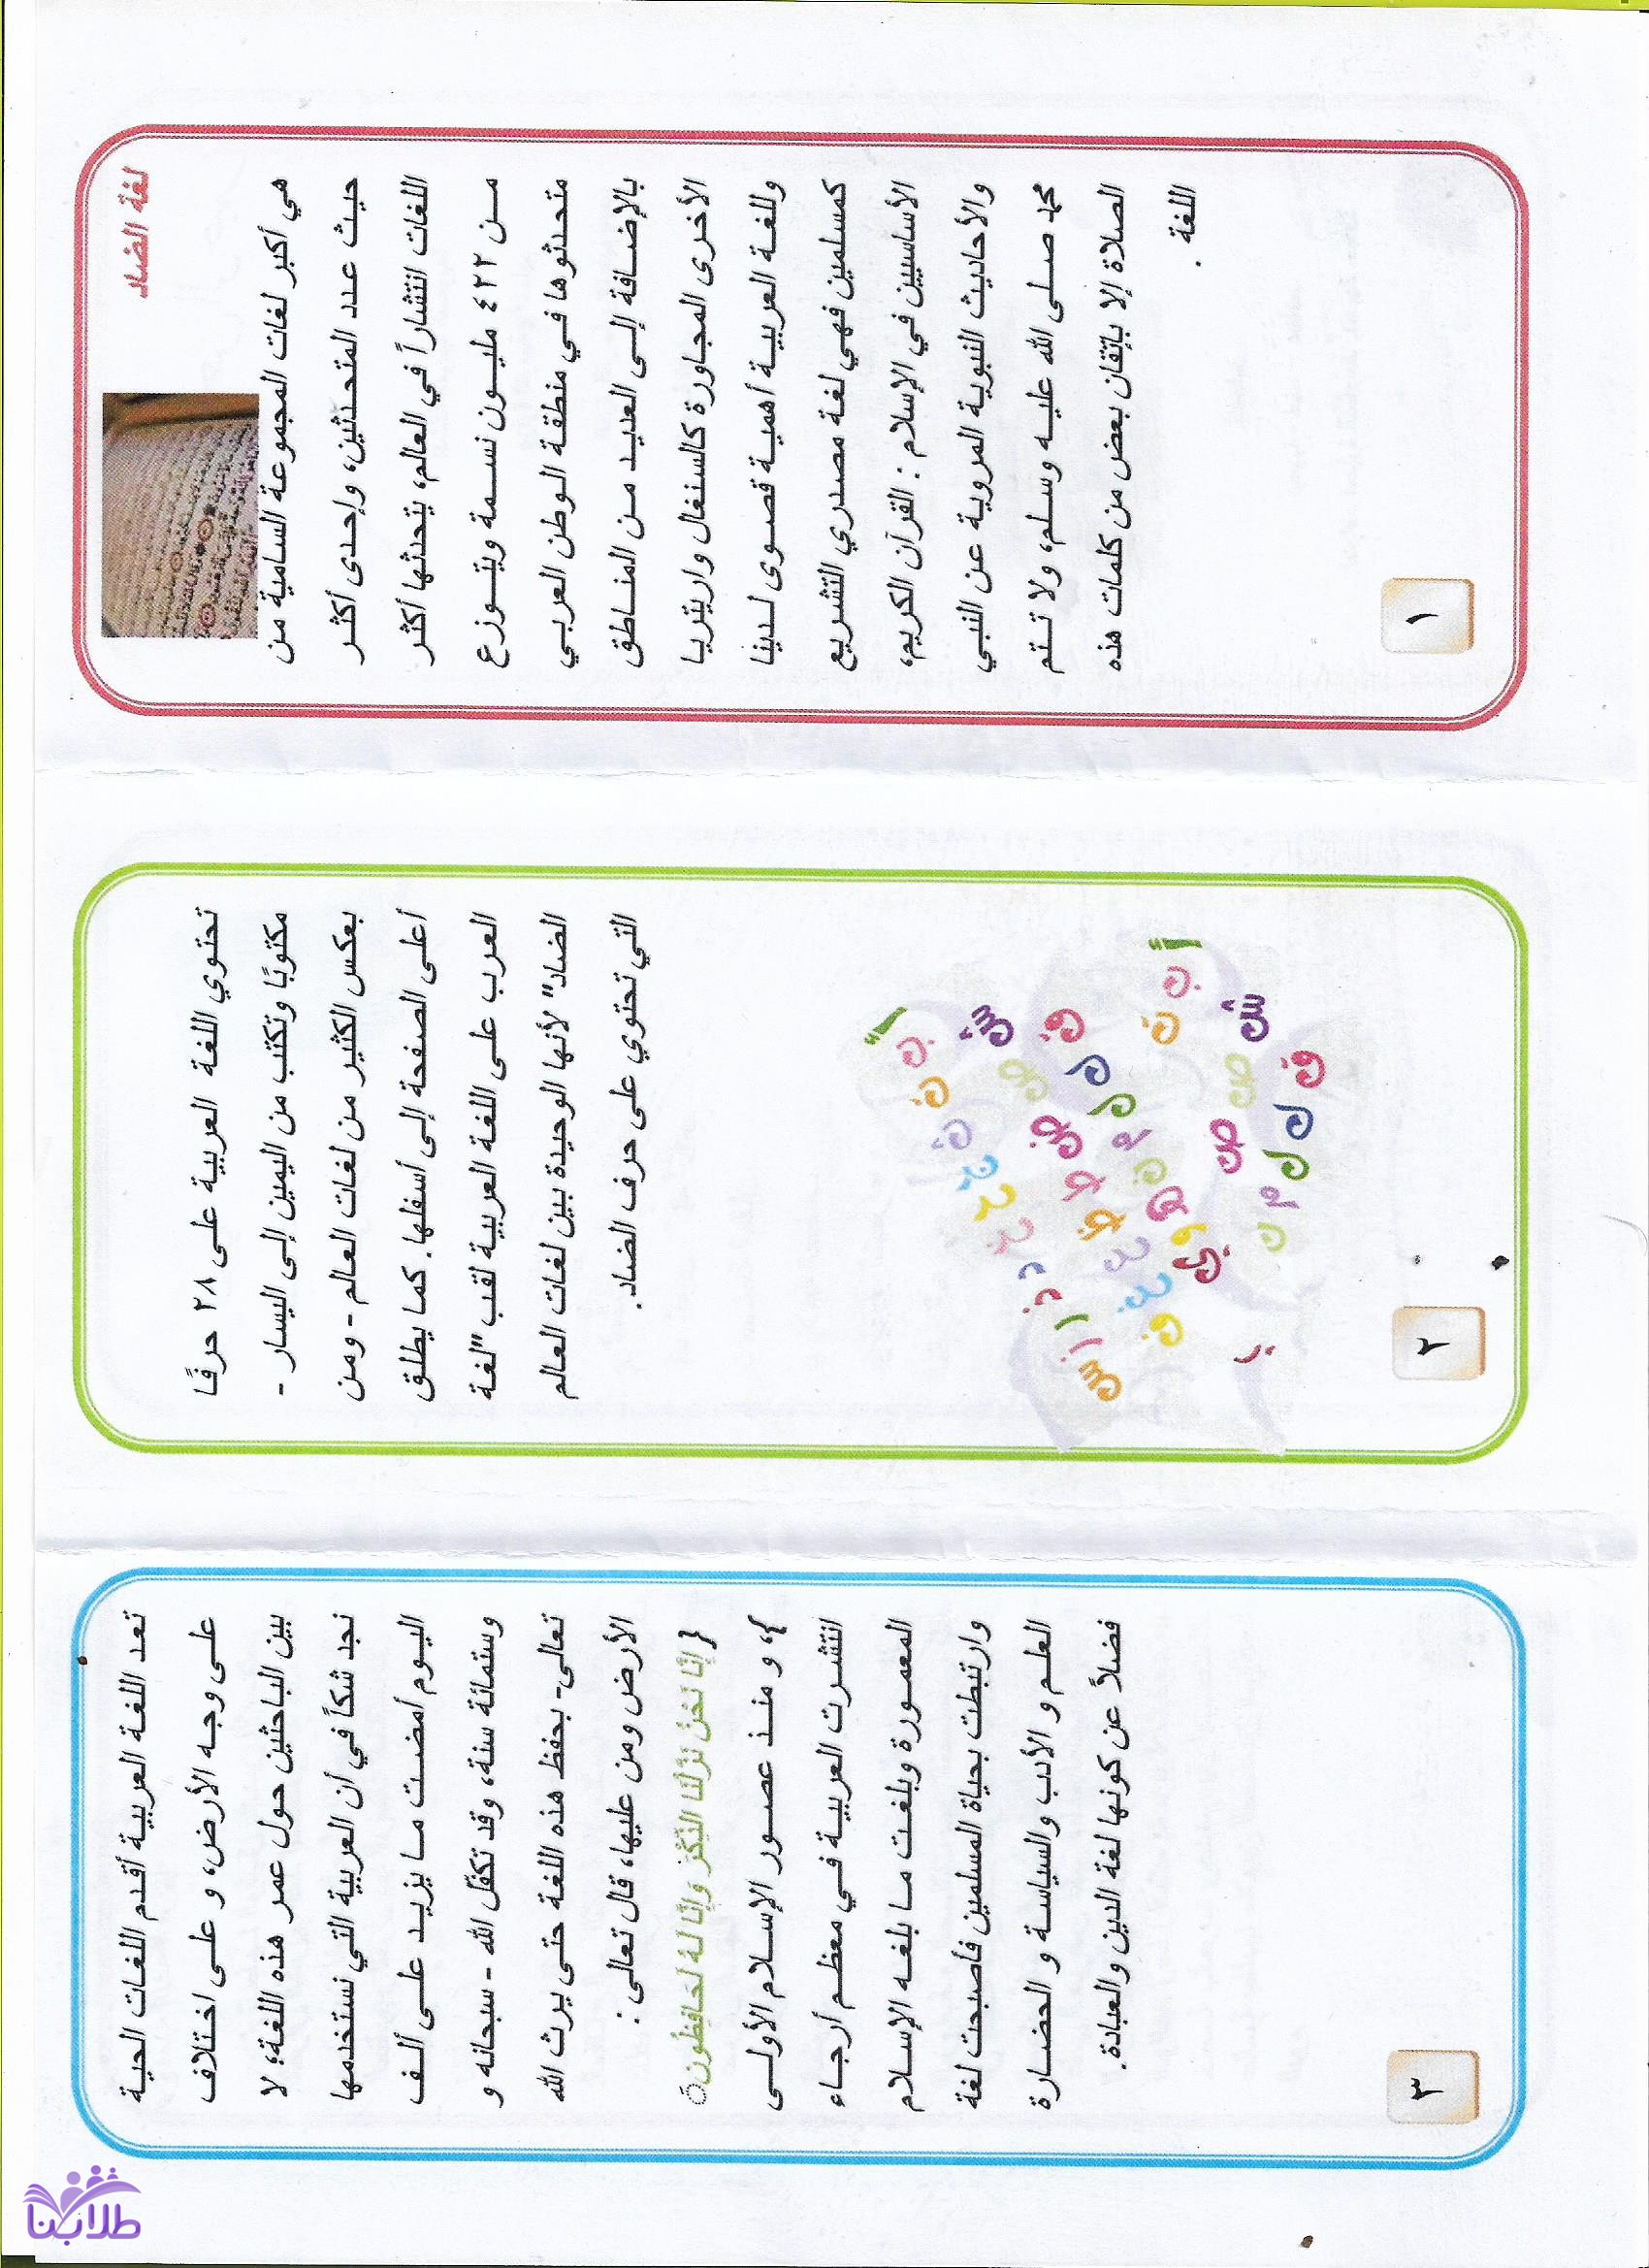 لغة الضاد
هي أكبر لغات المجموعة السامية من
حيث عدد المتحدثين، وإحدى أكثر
اللغات انتشاراً في العالم، يتحدثها أكثر
من ٤٢٢ مليون نسمة ويتوزع
متحدثوها في منطقة الوطن العربي
بالإضافة إلى العديد من المناطق
الأخرى المجاورة كالسنغال واريتريا
وللغة العربية أهمية قصوى لدينا
كمسلمين فهي لغة مصدري التشريع
الأساسيين في الإسلام : القرآن الكريم،
والأحاديث النبوية المروية عن النبي
محمد صلى الله عليه وسلم، ولا تتم
الصلاة إلا بإتقان بعض من كلمات هذه
اللغة .
١
تحتوي اللغة العربية على ٢٨ حرفًا
مكتوبًا وتكتب من اليمين إلى اليسار -
بعكس الكثير من لغات العالم - ومن
أعلى الصفحة إلى أسفلها. كما يطلق
العرب على اللغة العربية لقب "لغة
الضاد" لأنها الوحيدة بين لغات العالم
التي تحتوي على حرف الضاد.
٢
تعد اللغة العربية أقدم اللغات الحية
على وجه الأرض، و على اختلاف
بين الباحثين حول عمر هذه اللغة؛ لا
نجد شكاً في أن العربية التي نستخدمها
اليوم أمضت ما يزيد على ألف
وستمائة سنة، وقد تكفّل الله - سبحانه و
تعالى- بحفظ هذه اللغة حتى يرث الله
الأرض ومن عليها، قال تعالى :
{ إِنَّا نَحْنُ نَزَّلْنَا الذِّكْرَ وَإِنَّا لَهُ لَحَافِظُونَ
}، و منذ عصور الإسلام الأولى
انتشرت العربية في معظم أرجاء
المعمورة وبلغت ما بلغه الإسلام
وارتبطت بحياة المسلمين فأصبحت لغة
العلم و الأدب والسياسة و الحضارة
فضلاً عن كونها لغة الدين والعبادة.
٣
طلابنا